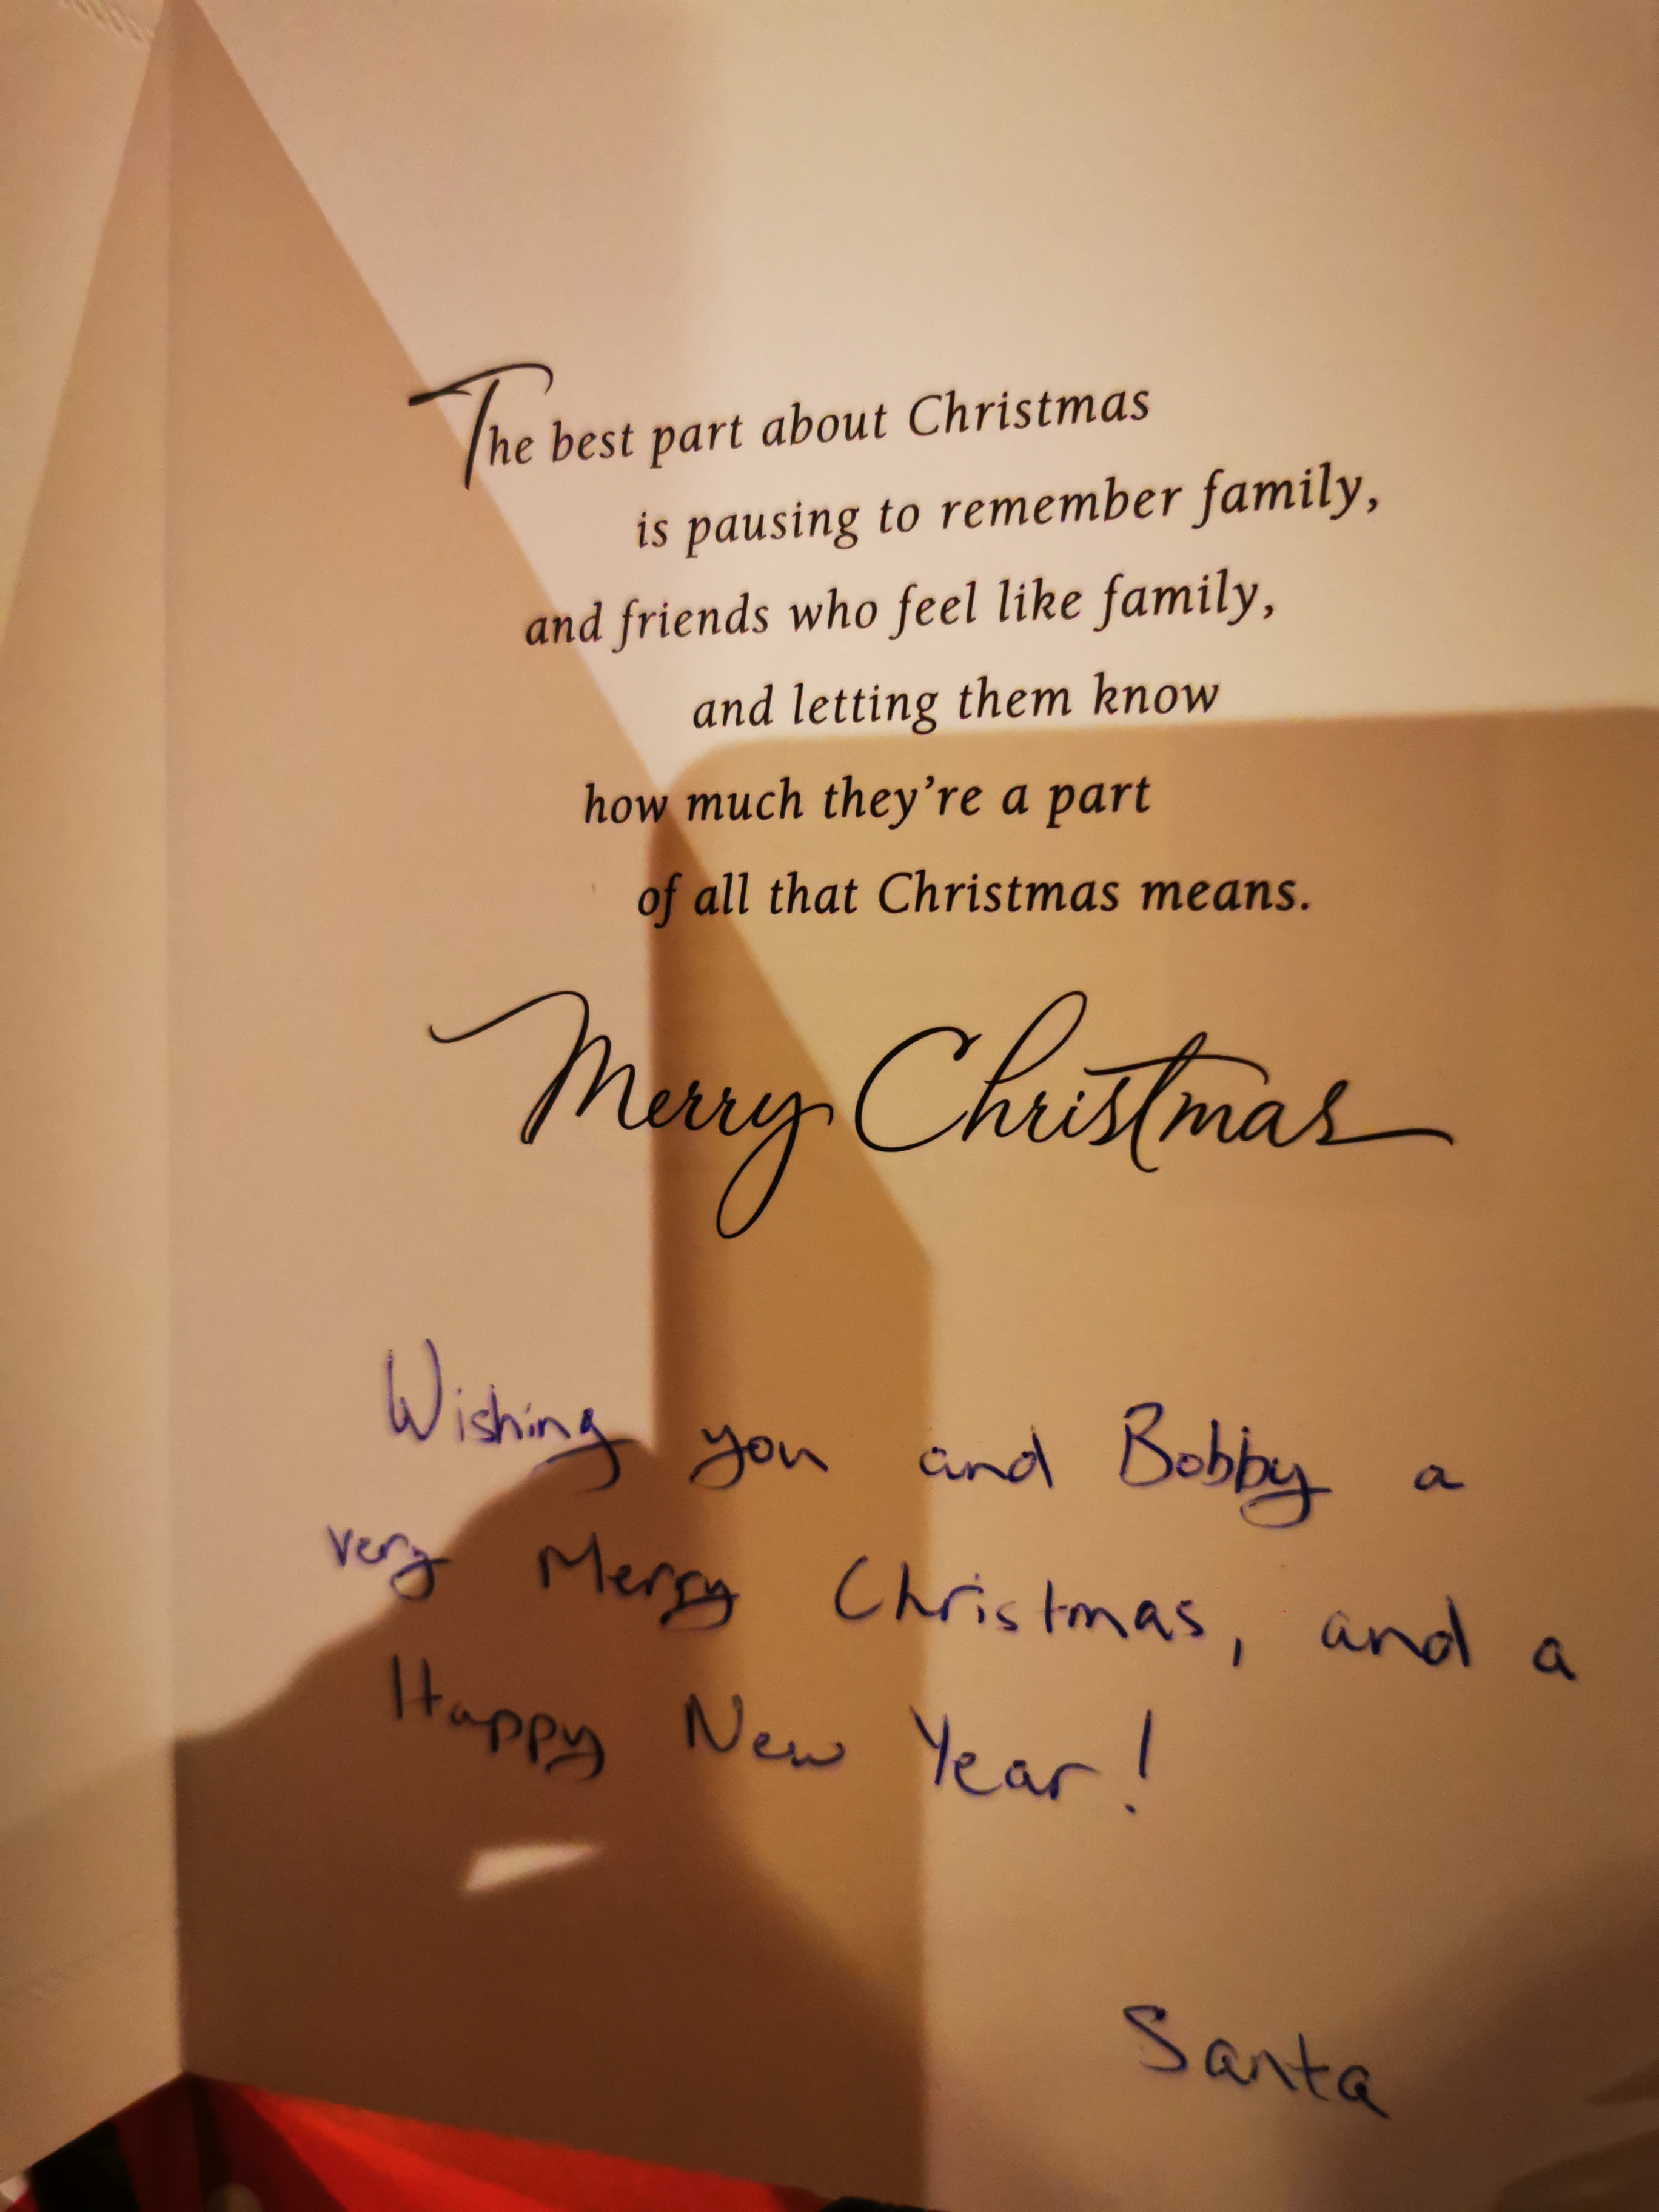 The best part about Christmas
is pausing to remember family,
and friends who feel like family,
and letting them know
how much they're a part
of all that Christmas means.
Merry Christmas
Wishing you and Bobby a
very Merry Christmas, and a
Happy New Year!
Santa